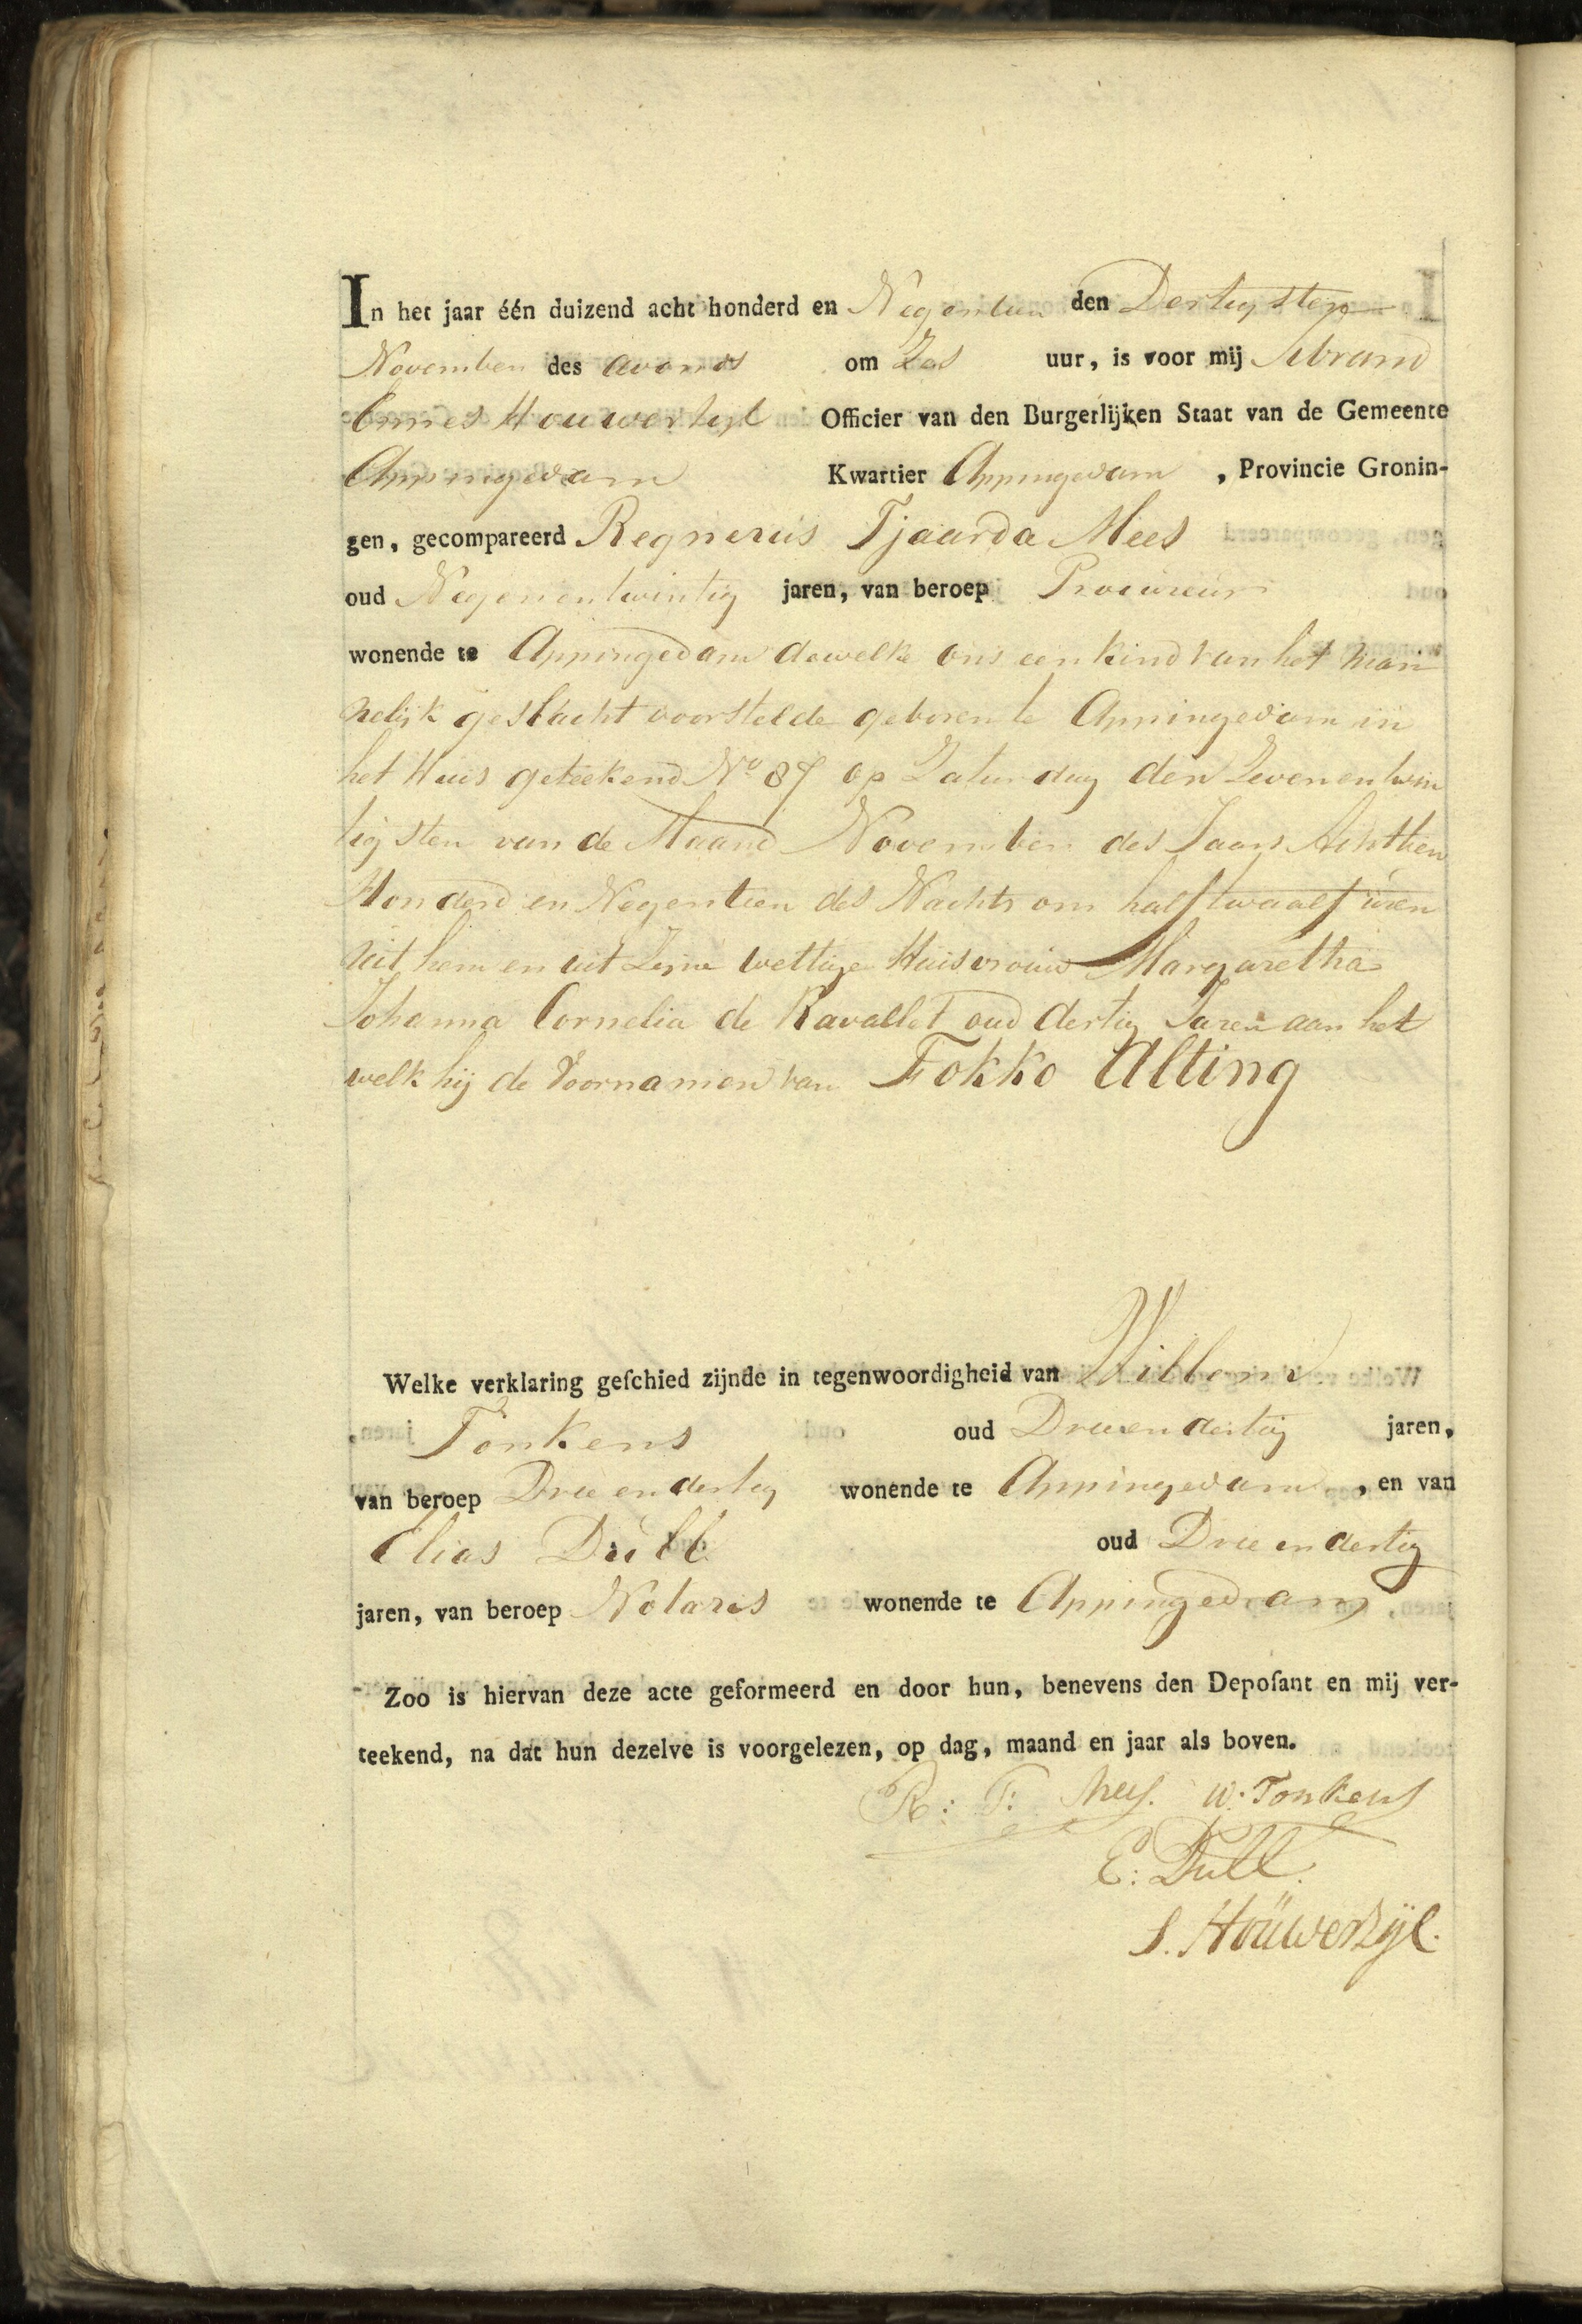 In het jaar één duizend acht honderd en Negentien den Dertigsten
November des avonds om Zes uur, is voor mij Sibrand
Ennes Houwerzijl Officier van den Burgerlijken Staat van de Gemeente
Appingedam Kwartier Appingedam, Provincie Gronin-
gen, gecompareerd Regnerus Tjaarda Mees
oud Negenentwintig jaren, van beroep Procureur
wonende te Appingedam dewelke ons een kind van het man
nelijk geslacht voorstelde geboren te Appingedam in
het Huis geteekend No 87 op Zaturdag den Zevenentwin
tigsten van de Maand November des Jaars Achttien
Honderd en Negentien des Nachts om half twaalf uren
uit hem en uit Zijne wettige Huisvrouw Margaretha
Johanna Cornelia de Ravallet oud dertig Jaren aan het
welk hij de Voornamen van Fokko Alting
Welke verklaring geſchied zijnde in tegenwoordigheid van Willem
Tonkens oud Drieendertig jaren,
van beroep Drieendertig wonende te Appingedam, en van
Elias Dùll oud Drieendertig
jaren, van beroep Notaris wonende te Appingedam
Zoo is hiervan deze acte geformeerd en door hun, benevens den Depoſant en mij ver-
teekend, na dat hun dezelve is voorgelezen, op dag, maand en jaar als boven.
R: T: Mees. W. Tonkens
E: Dull.
S. Hoüwerzijl.